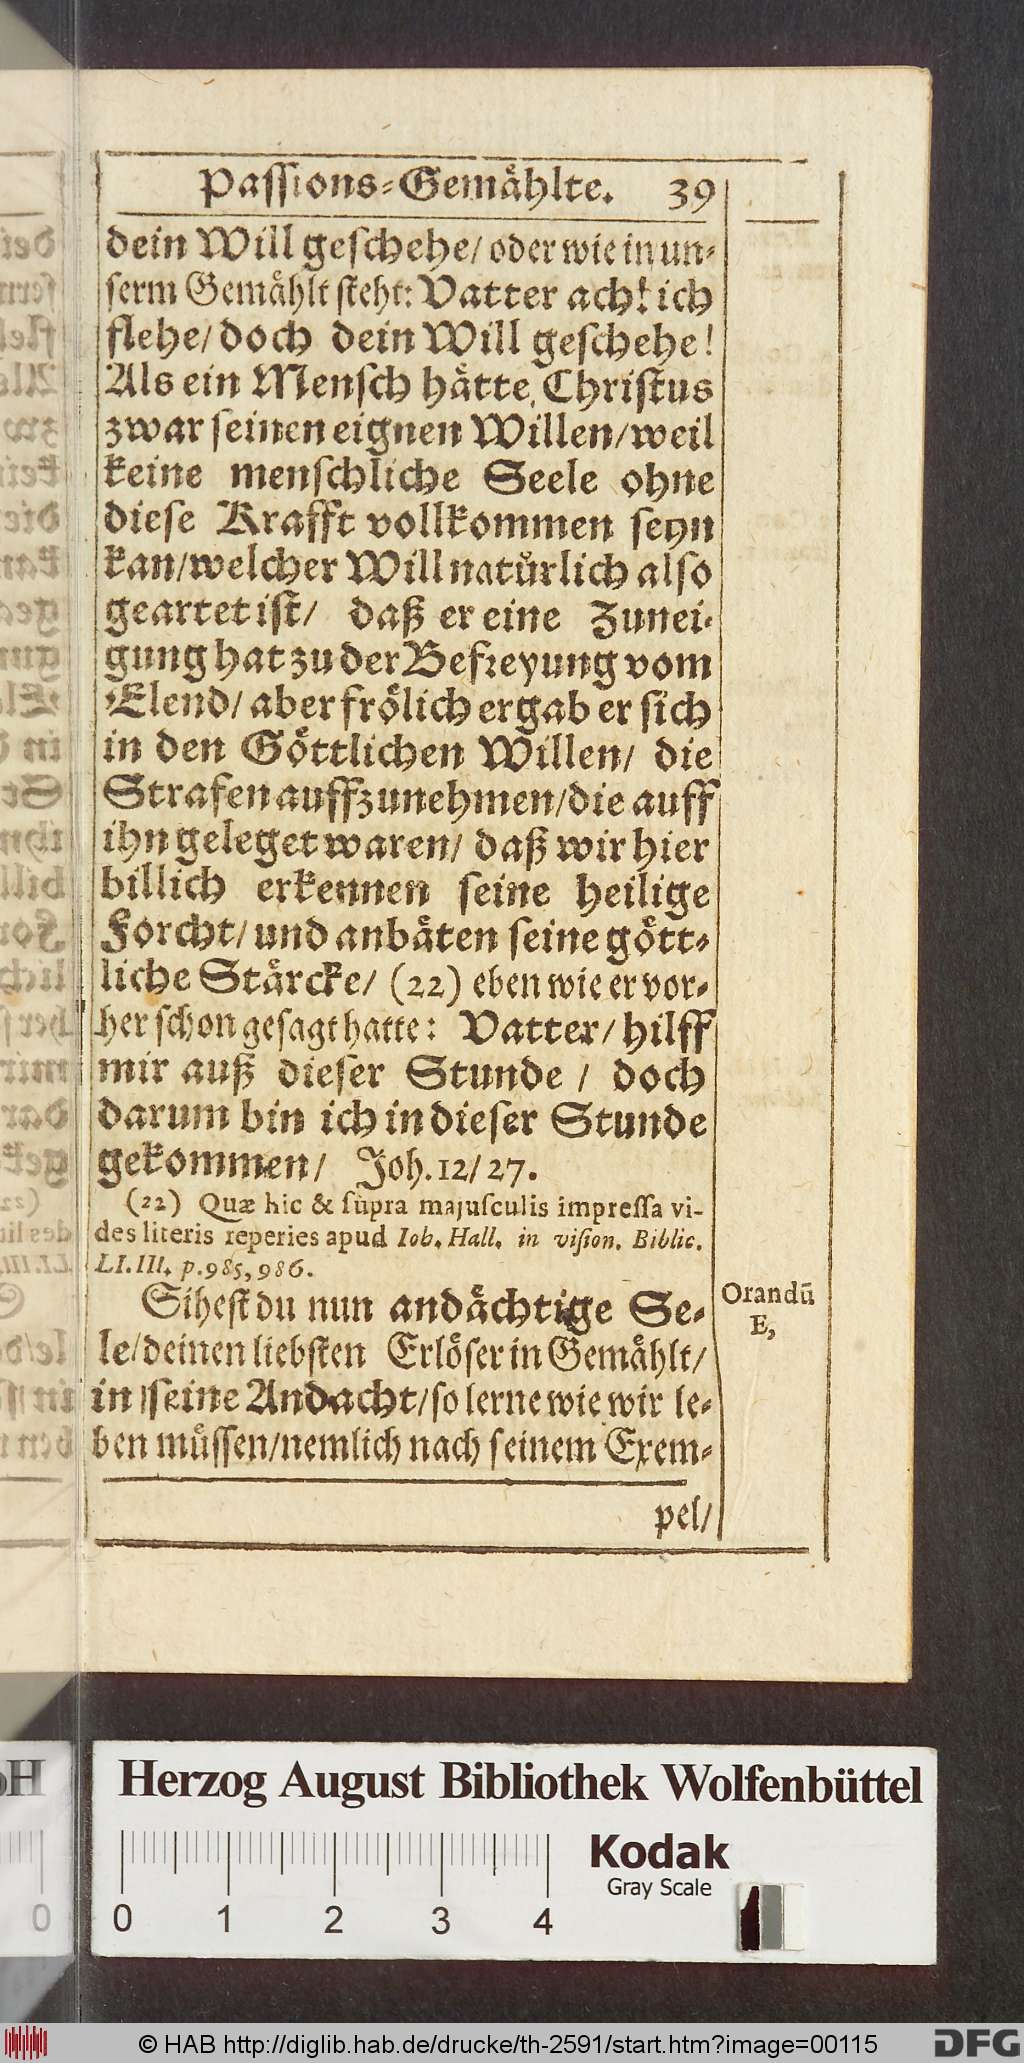 Passions-Gemählte. 39
dein Will geschehe/ oder wie in un-
serm Gemählt steht: Vatter ach! ich
flehe/ doch dein Will geschehe!
Als ein Mensch hätte Christus
zwar seinen eignen Willen/ weil
keine menschliche Seele ohne
diese Krafft vollkommen seyn
kan/ welcher Will natürlich also
geartet ist/ daß er eine Zunei-
gung hat zu der Befreyung vom
Elend/ aber frölich ergab er sich
in den Göttlichen Willen/ die
Strafen auffzunehmen/ die auff
ihn geleget waren/ daß wir hier
billich erkennen seine heilige
Forcht/ und anbäten seine gött-
liche Stärcke/ (22) eben wie er vor-
her schon gesagt hatte: Vatter/ hilff
mir auß dieser Stunde / doch
darum bin ich in dieser Stunde
gekommen/ Joh. 12/ 27.
(22) Quæ hic & supra majusculis impressa vi-
des literis reperies apud Iob. Hall. in vision. Biblic.
LI. III. p. 985, 986.
Sihest du nun andächtige See-
le/ deinen liebsten Erlöser in Gemählt/
in seine Andacht/ so lerne wie wir le-
ben müssen/ nemlich nach seinem Exem-
pel/
Orandū
E,
Herzog August Bibliothek Wolfenbüttel
Kodak
Gray Scale
0 0 1 2 3 4
© HAB http://diglib.hab.de/drucke/th-2591/start.htm?image=00115
DFG